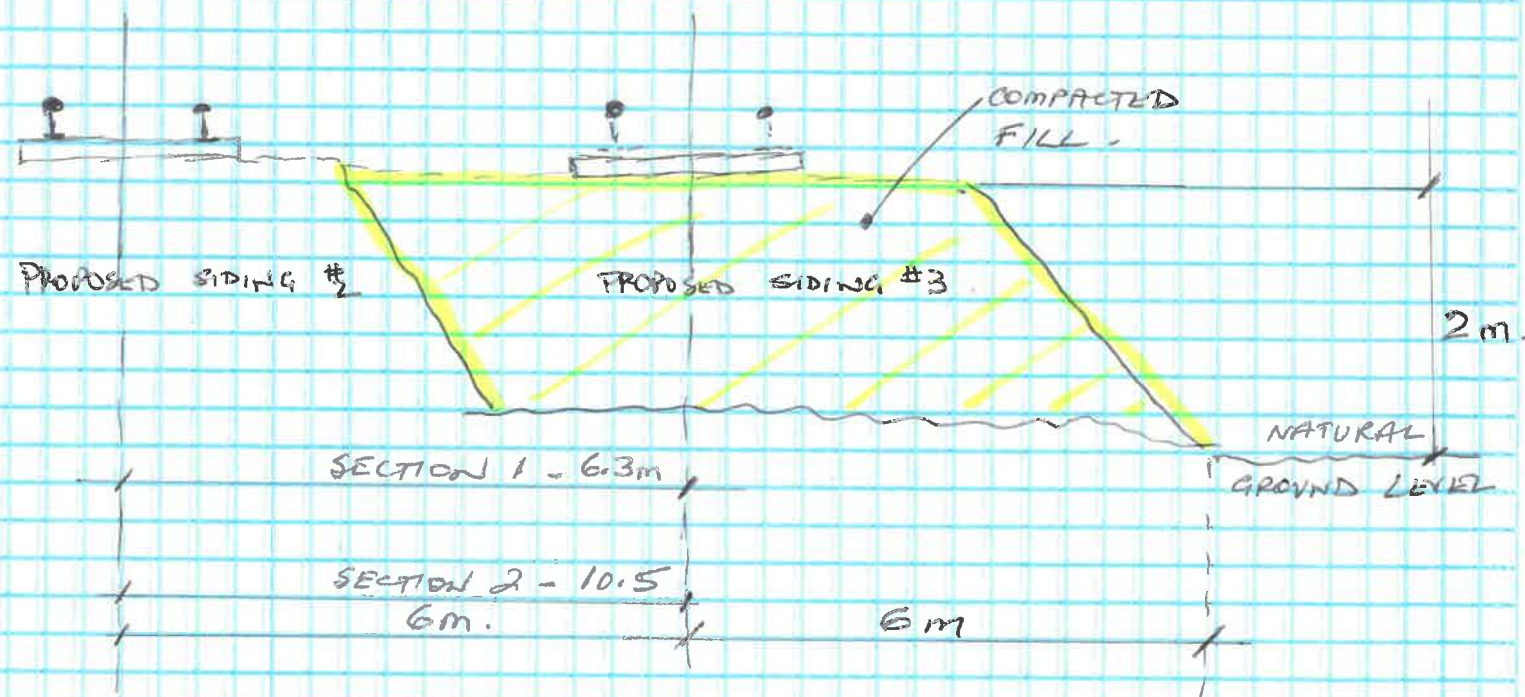 COMPACTED
FILL.
PROPOSED SIDING #2
PROPOSED SIDING #3
2m.
NATURAL
GROUND LEVEL
SECTION 1 - 6.3m
SECTION 2 - 10.5
6m.
6m